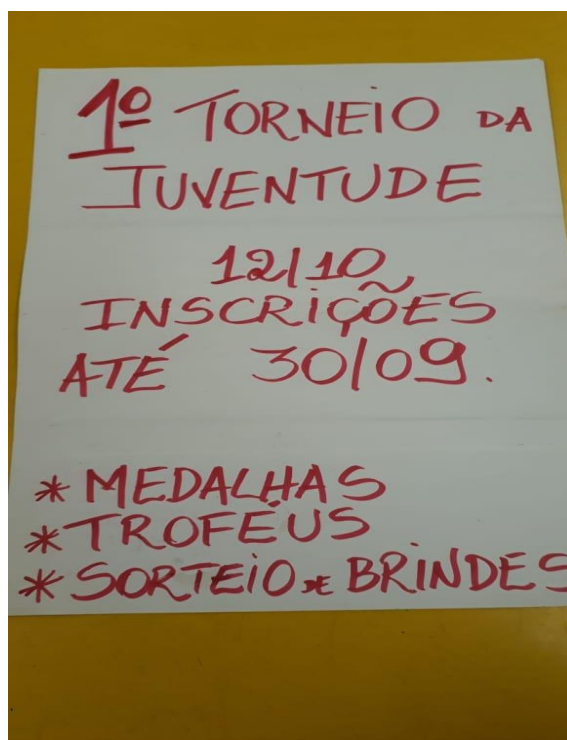 1º TORNEIO DA
JUVENTUDE
12/10
INSCRIÇÕES
ATÉ 30/09.
* MEDALHAS
* TROFÉUS
* SORTEIO DE BRINDES